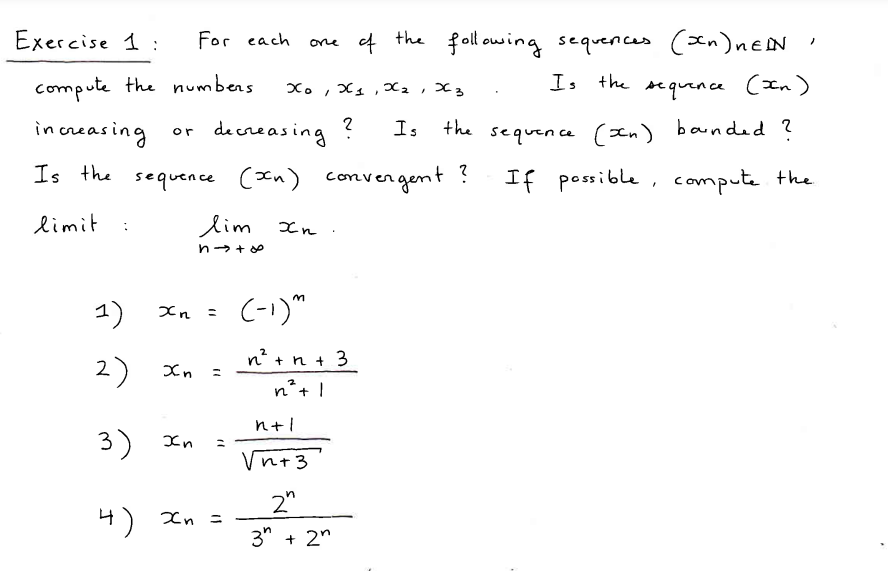 Exercise 1 : For each one of the following sequences (xn)n∈ℕ ,
compute the numbers x₀ , x₁ , x₂ , x₃ . Is the sequence (xn)
increasing or decreasing ? Is the sequence (xn) bounded ?
Is the sequence (xn) convergent ? If possible , compute the
limit : lim xn .
n→+∞
1) xn = (-1)ⁿ
2) xn = n² + n + 3 / n² + 1
3) xn = n+1 / √n+3
4) xn = 2ⁿ / 3ⁿ + 2ⁿ